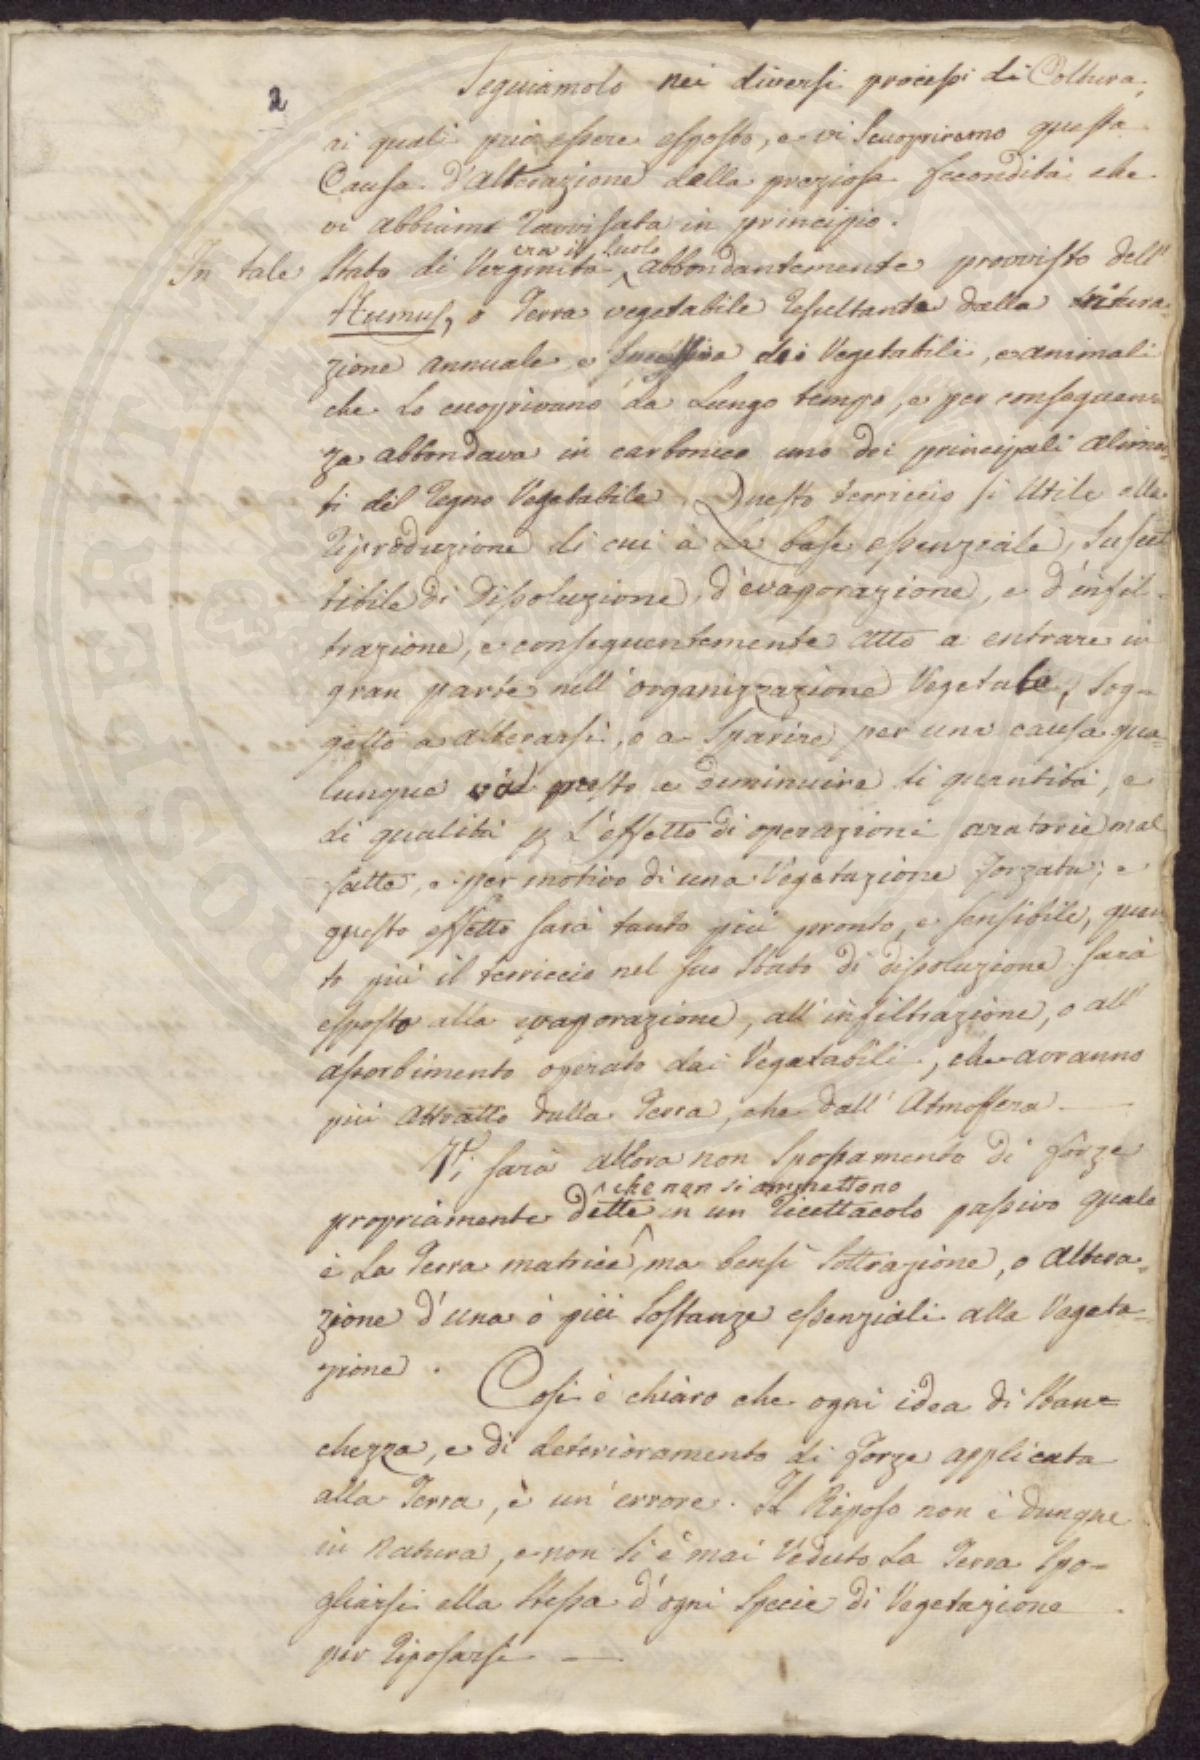 2
Seguiamolo nei diversi processi di Coltura,
ai quali può essere esposto, e vi scuopriremo questa
Causa d'alterazione della preziosa fecondità che
vi abbiamo ravvisata in principio.
era il suolo
In tale stato di Verginità abbondantemente provvisto dell'
Humus, o Terra vegetabile resultante dalla tritura=
zione annuale, e successiva dei Vegetabili, e animali
che lo cuoprivano da lungo tempo, e per conseguen=
za abbondava in carbonico uno dei principali alimen=
ti del regno Vegetabile. Questo terriccio si utile alla
riproduzione di cui à la base essenziale, suscet
tibile di dissoluzione, d'evaporazione, e d'infil=
trazione, e conseguentemente atto a entrare in
gran parte nell'organizzazione Vegetale, sog=
getto a alterarsi, o a sparire per una causa qua=
lunque presto a diminuire di quantità, e
di qualità p l'effetto di operazioni aratorie mal
fatte, e per motivo di una Vegetazione forzata; e
questo effetto sarà tanto più pronto, e sensibile, quan
to più il terriccio nel suo stato di dissoluzione sarà
esposto alla evaporazione, all'infiltrazione, o all'
assorbimento operato dai Vegetabili, che avranno
più attratto dalla Terra, che dall'Atmosfera —
Vi sarà allora non spossamento di forze
che non si ammettono
propriamente dette in un ricettacolo passivo quale
è la Terra matrice, ma bensì sottrazione, o altera=
zione d'una ò più sostanze essenziali alla Vegeta=
zione.
Così è chiaro che ogni idea di stan=
chezza, e di deterioramento di forze applicata
alla Terra, è un'errore. Il Riposo non è dunque
in natura, e non si è mai veduto la Terra spo=
gliarsi ella stessa d'ogni specie di Vegetazione
per riposarsi —